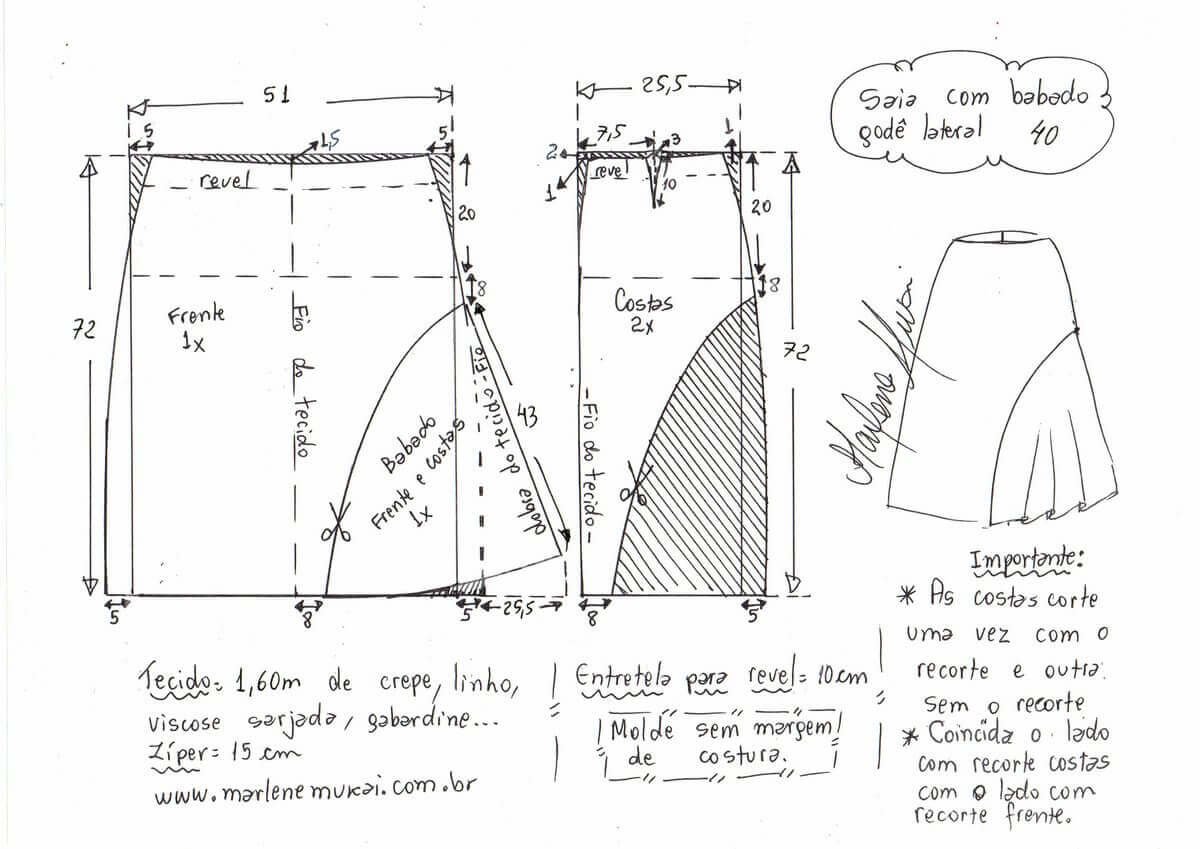 Saia com babado
godê lateral 40
51
5
1,5
5
revel
20
8
72
Frente
1x
Fio do tecido
43
Babado
Frente e costas
1x
Fio
dobra do tecido
5
8
5
25,5
25,5
7,5
3
1
2
1
revel
10
20
8
Costas
2x
72
Fio do tecido
8
5
Marlene Mukai
Importante:
* As costas corte
uma vez com o
recorte e outra
sem o recorte
* Coincida o lado
com recorte costas
com o lado com
recorte frente.
Tecido= 1,60m de crepe, linho,
viscose sarjada, gabardine...
Zíper= 15 cm
www.marlenemukai.com.br
Entretela para revel= 10cm
Molde sem margem
de costura.